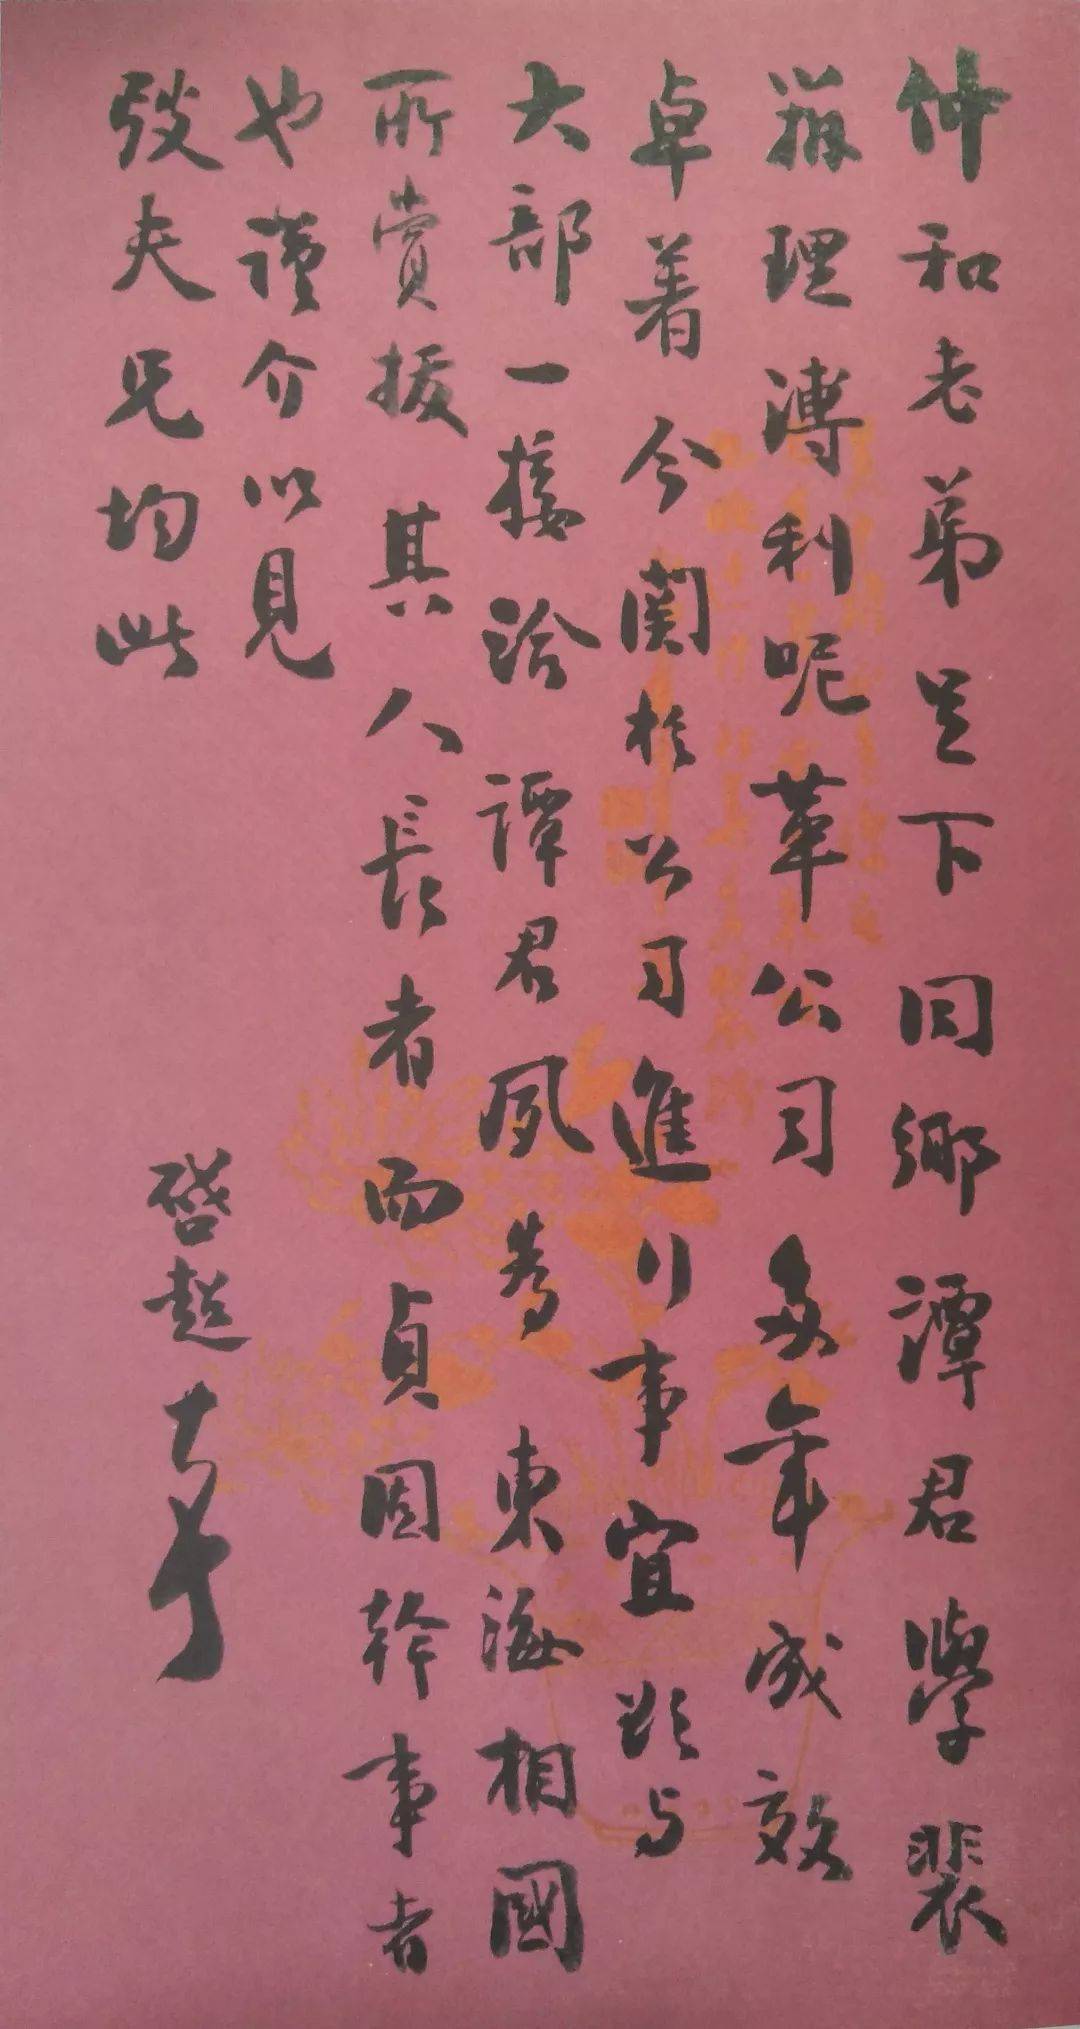 仲和老弟足下同鄉譚君學裴
辦理溥利呢革公司多年成效
卓著今關於公司進行事宜欲与
大部一接洽譚君夙為東海相國
所賞拔其人長者而貞固幹事者
也謹介以見
弢夫兄均此
啓超